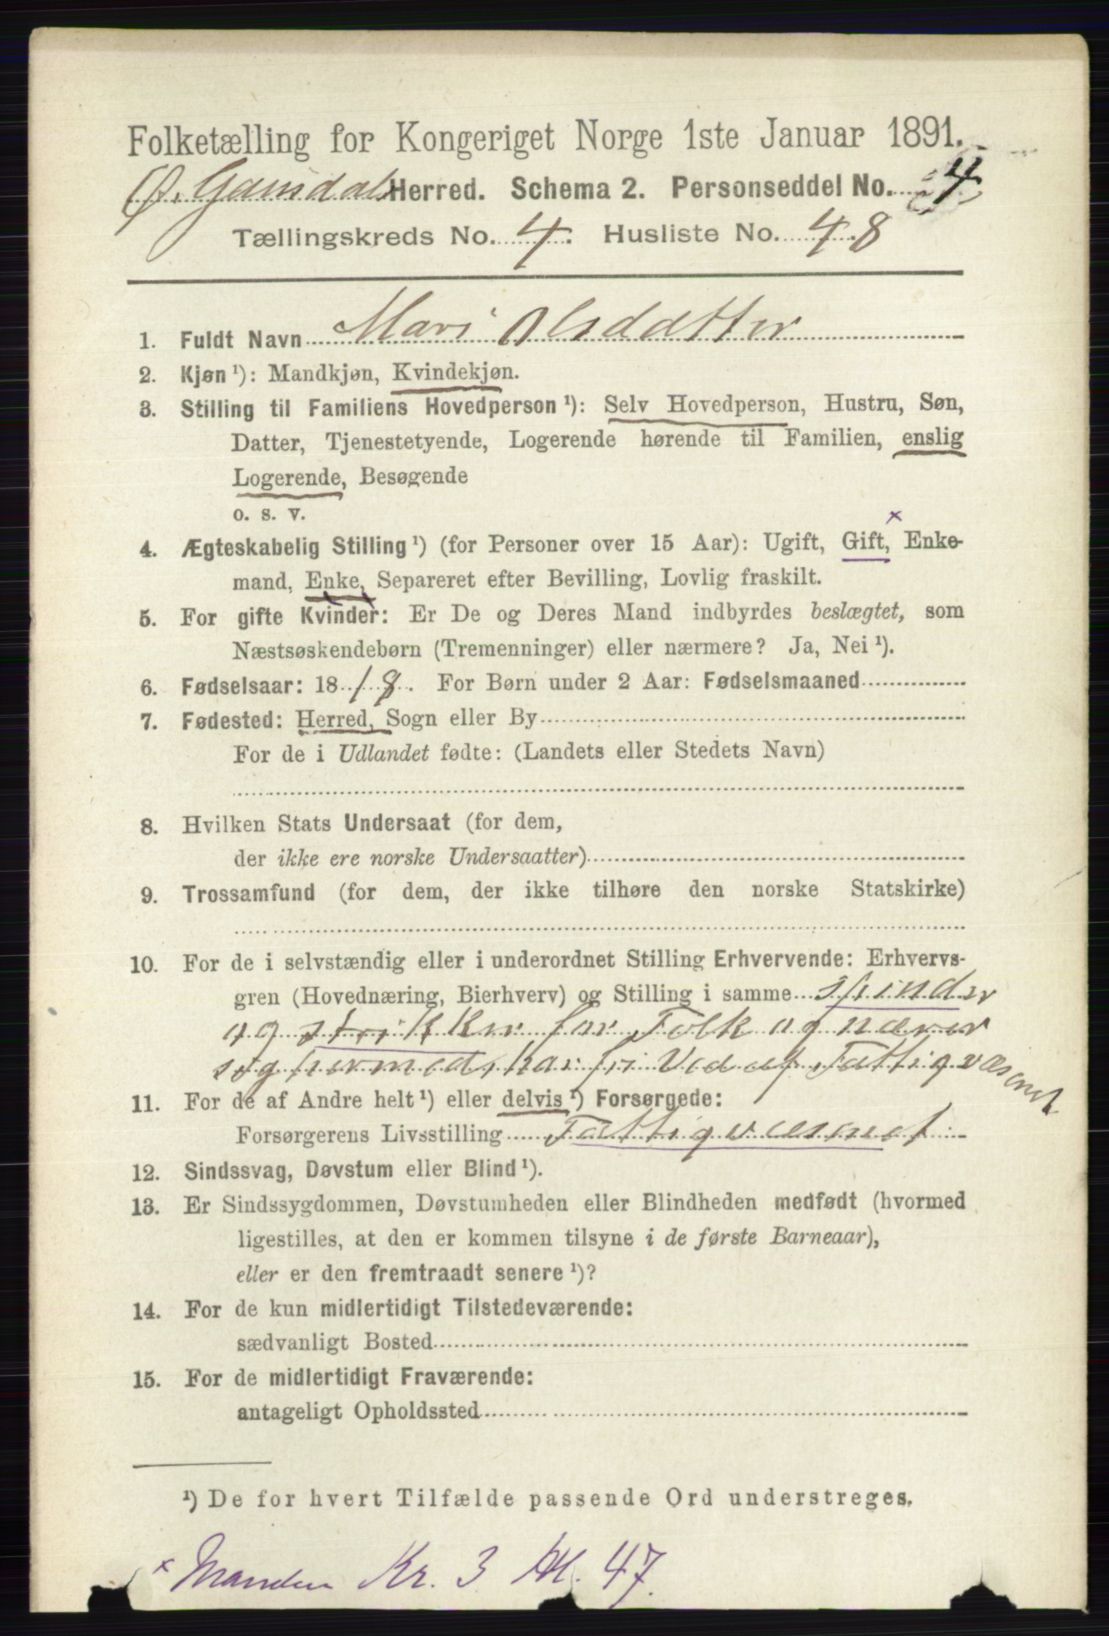 Folketælling for Kongeriget Norge 1ste Januar 1891.
Ø. Gausdals Herred. Schema 2. Personseddel No. 4
Tællingskreds No. 4. Husliste No. 48
1. Fuldt Navn Mari Olsdatter
2. Kjøn ¹): Mandkjøn, Kvindekjøn.
3. Stilling til Familiens Hovedperson ¹): Selv Hovedperson, Hustru, Søn,
Datter, Tjenestetyende, Logerende hørende til Familien, enslig
Logerende, Besøgende
o. s. v.
x
4. Ægteskabelig Stilling ¹) (for Personer over 15 Aar): Ugift, Gift, Enke-
mand, Enke, Separeret efter Bevilling, Lovlig fraskilt.
5. For gifte Kvinder: Er De og Deres Mand indbyrdes beslægtet, som
Næstsøskendebørn (Tremenninger) eller nærmere? Ja, Nei ¹).
6. Fødselsaar: 1818. For Børn under 2 Aar: Fødselsmaaned
7. Fødested: Herred, Sogn eller By
For de i Udlandet fødte: (Landets eller Stedets Navn)
8. Hvilken Stats Undersaat (for dem,
der ikke ere norske Undersaatter)
9. Trossamfund (for dem, der ikke tilhøre den norske Statskirke)
10. For de i selvstændig eller i underordnet Stilling Erhvervende: Erhvervs-
gren (Hovednæring, Bierhverv) og Stilling i samme spinder
og strikker for Folk og nærer
sig hermed, har fri Ved af Fattigvæsenet
11. For de af Andre helt ¹) eller delvis ¹) Forsørgede:
Forsørgerens Livsstilling Fattigvæsenet
12. Sindssvag, Døvstum eller Blind ¹).
13. Er Sindssygdommen, Døvstumheden eller Blindheden medfødt (hvormed
ligestilles, at den er kommen tilsyne i de første Barneaar),
eller er den fremtraadt senere ¹)?
14. For de kun midlertidigt Tilstedeværende:
sædvanligt Bosted
15. For de midlertidigt Fraværende:
antageligt Opholdssted
¹) De for hvert Tilfælde passende Ord understreges.
x Manden Kr. 3 Hl. 47.